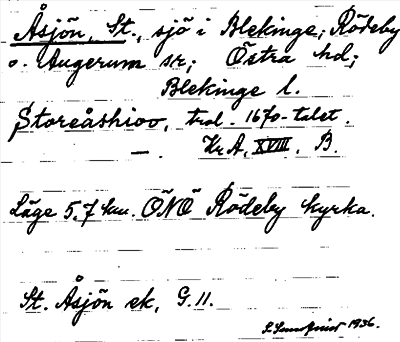 Åsjön, St., sjö i Blekinge; Rödeby
o. Augerum sr; Östra hd;
Blekinge l.
Storeåshioo, trol. 1670-talet.
— . Kr A, XVIII, B.
Läge 5,7 km. ÖNÖ Rödeby kyrka.
St. Åsjön ek, G. 11.
1936.